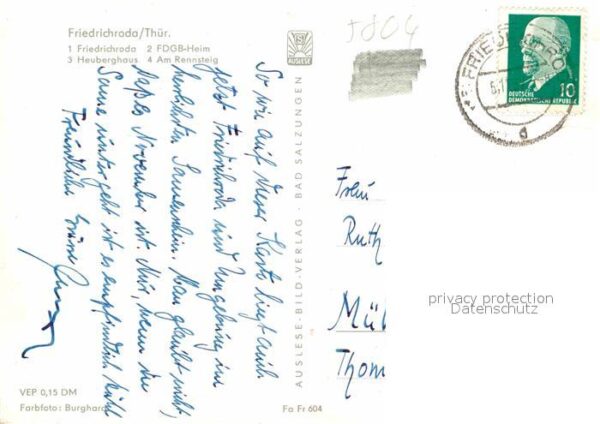 Friedrichroda/Thür.
1 Friedrichroda 2 FDGB-Heim
3 Heuberghaus 4 Am Rennsteig
AUSLESE
5804
FRIED
DEUTSCHE
DEMOKRATISCHE REPUBLIK
10
d
So wie auf dieser Karte liegt auch
jetzt Friedrichroda und Umgebung im
herrlichsten Sonnenschein. Man glaubt nicht,
daß es November ist. Nur, wenn die
Sonne untergeht ist es empfindlich kühl
Freundliche Grüße
AUSLESE-BILD-VERLAG · BAD SALZUNGEN
Frau
Ruth
Mül
Thom
privacy protection
Datenschutz
VEP 0,15 DM
Farbfoto: Burghardt
Fa Fr 604